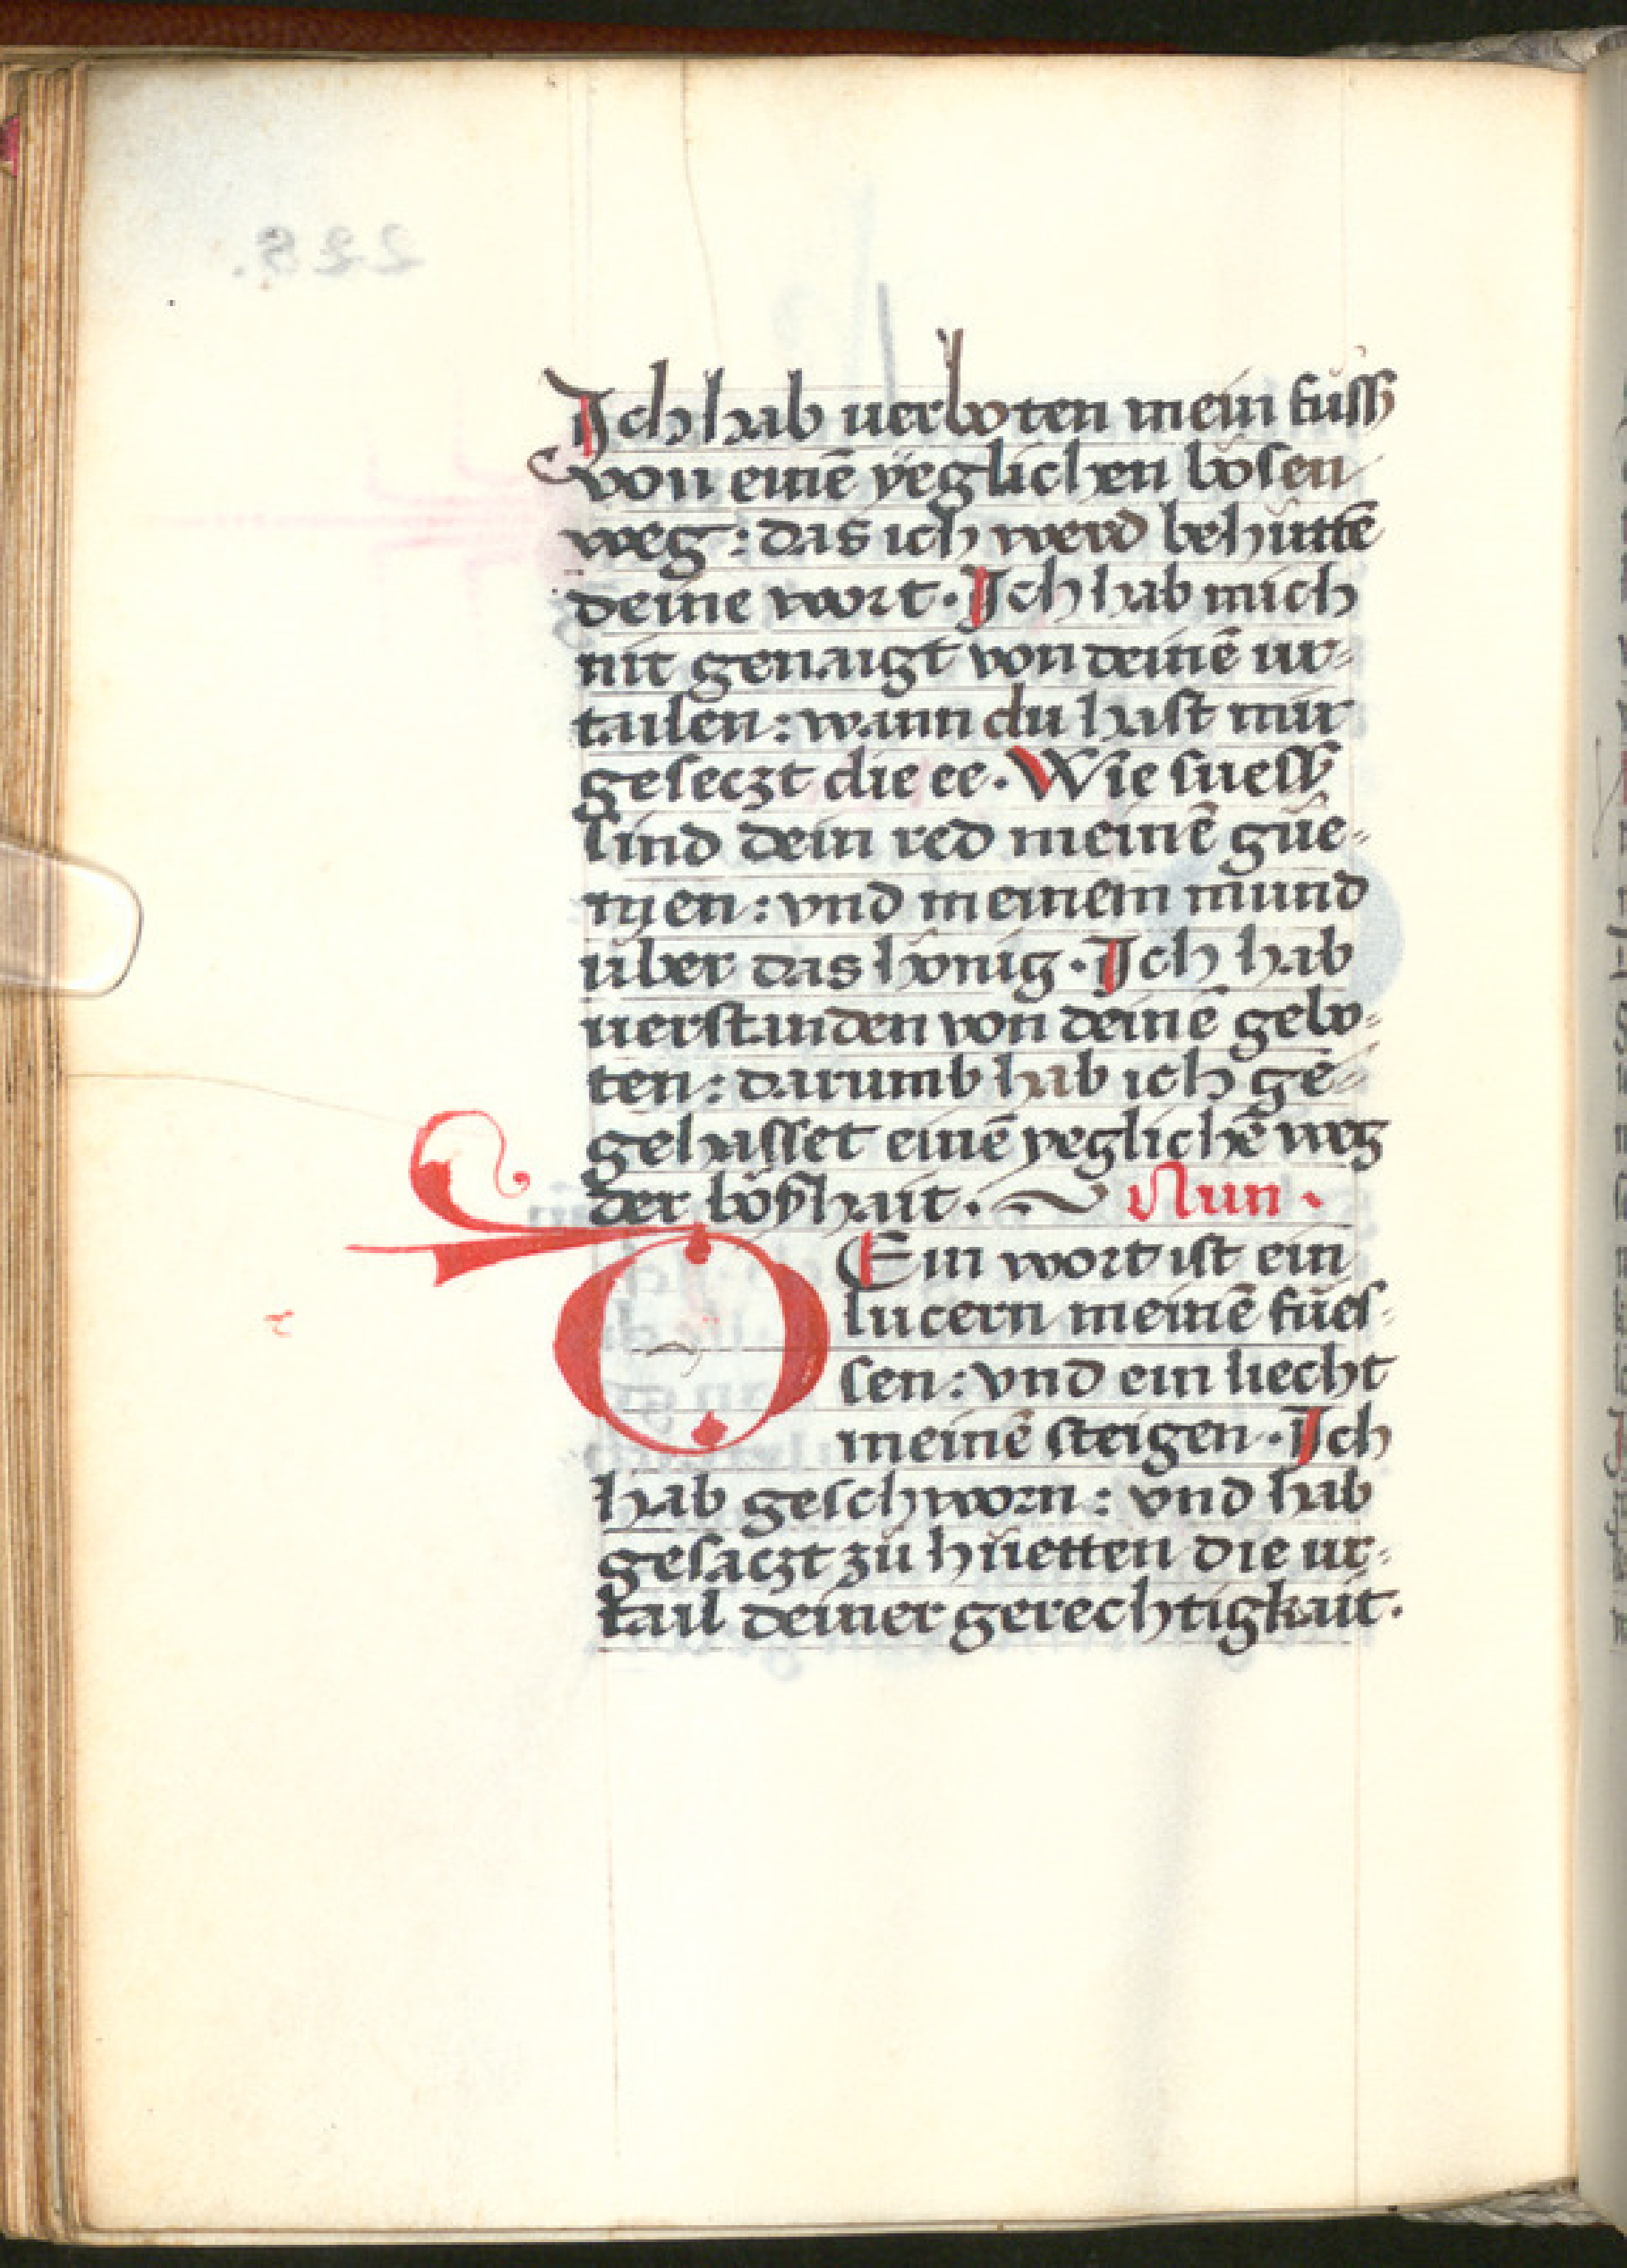 Ich hab uerboten mein fuſſ
von einē ÿeglichen böſen
weg : das ich werd behüttē
deine wort · Ich hab mich
nit genaigt von deinē ur⸗
tailen : wann du haſt mir
geſeczt die ee · Wie ſueſſ
ſind dein red meinē güe⸗
myen : vnd meinem mund
über das hönig · Ich hab
uerſtanden von deinē gebo⸗
ten : darumb hab ich ge⸗
gehaſſet einē yeglichē weg
der böſzhait · Nun ·
DEin wort iſt ein
lucern meinē füeſ⸗
ſen : vnd ein liecht
meinē ſteigen · Ich
hab geſchworn : vnd hab
geſäczt zů hüetten die ur⸗
tail deiner gerechtigkait ·